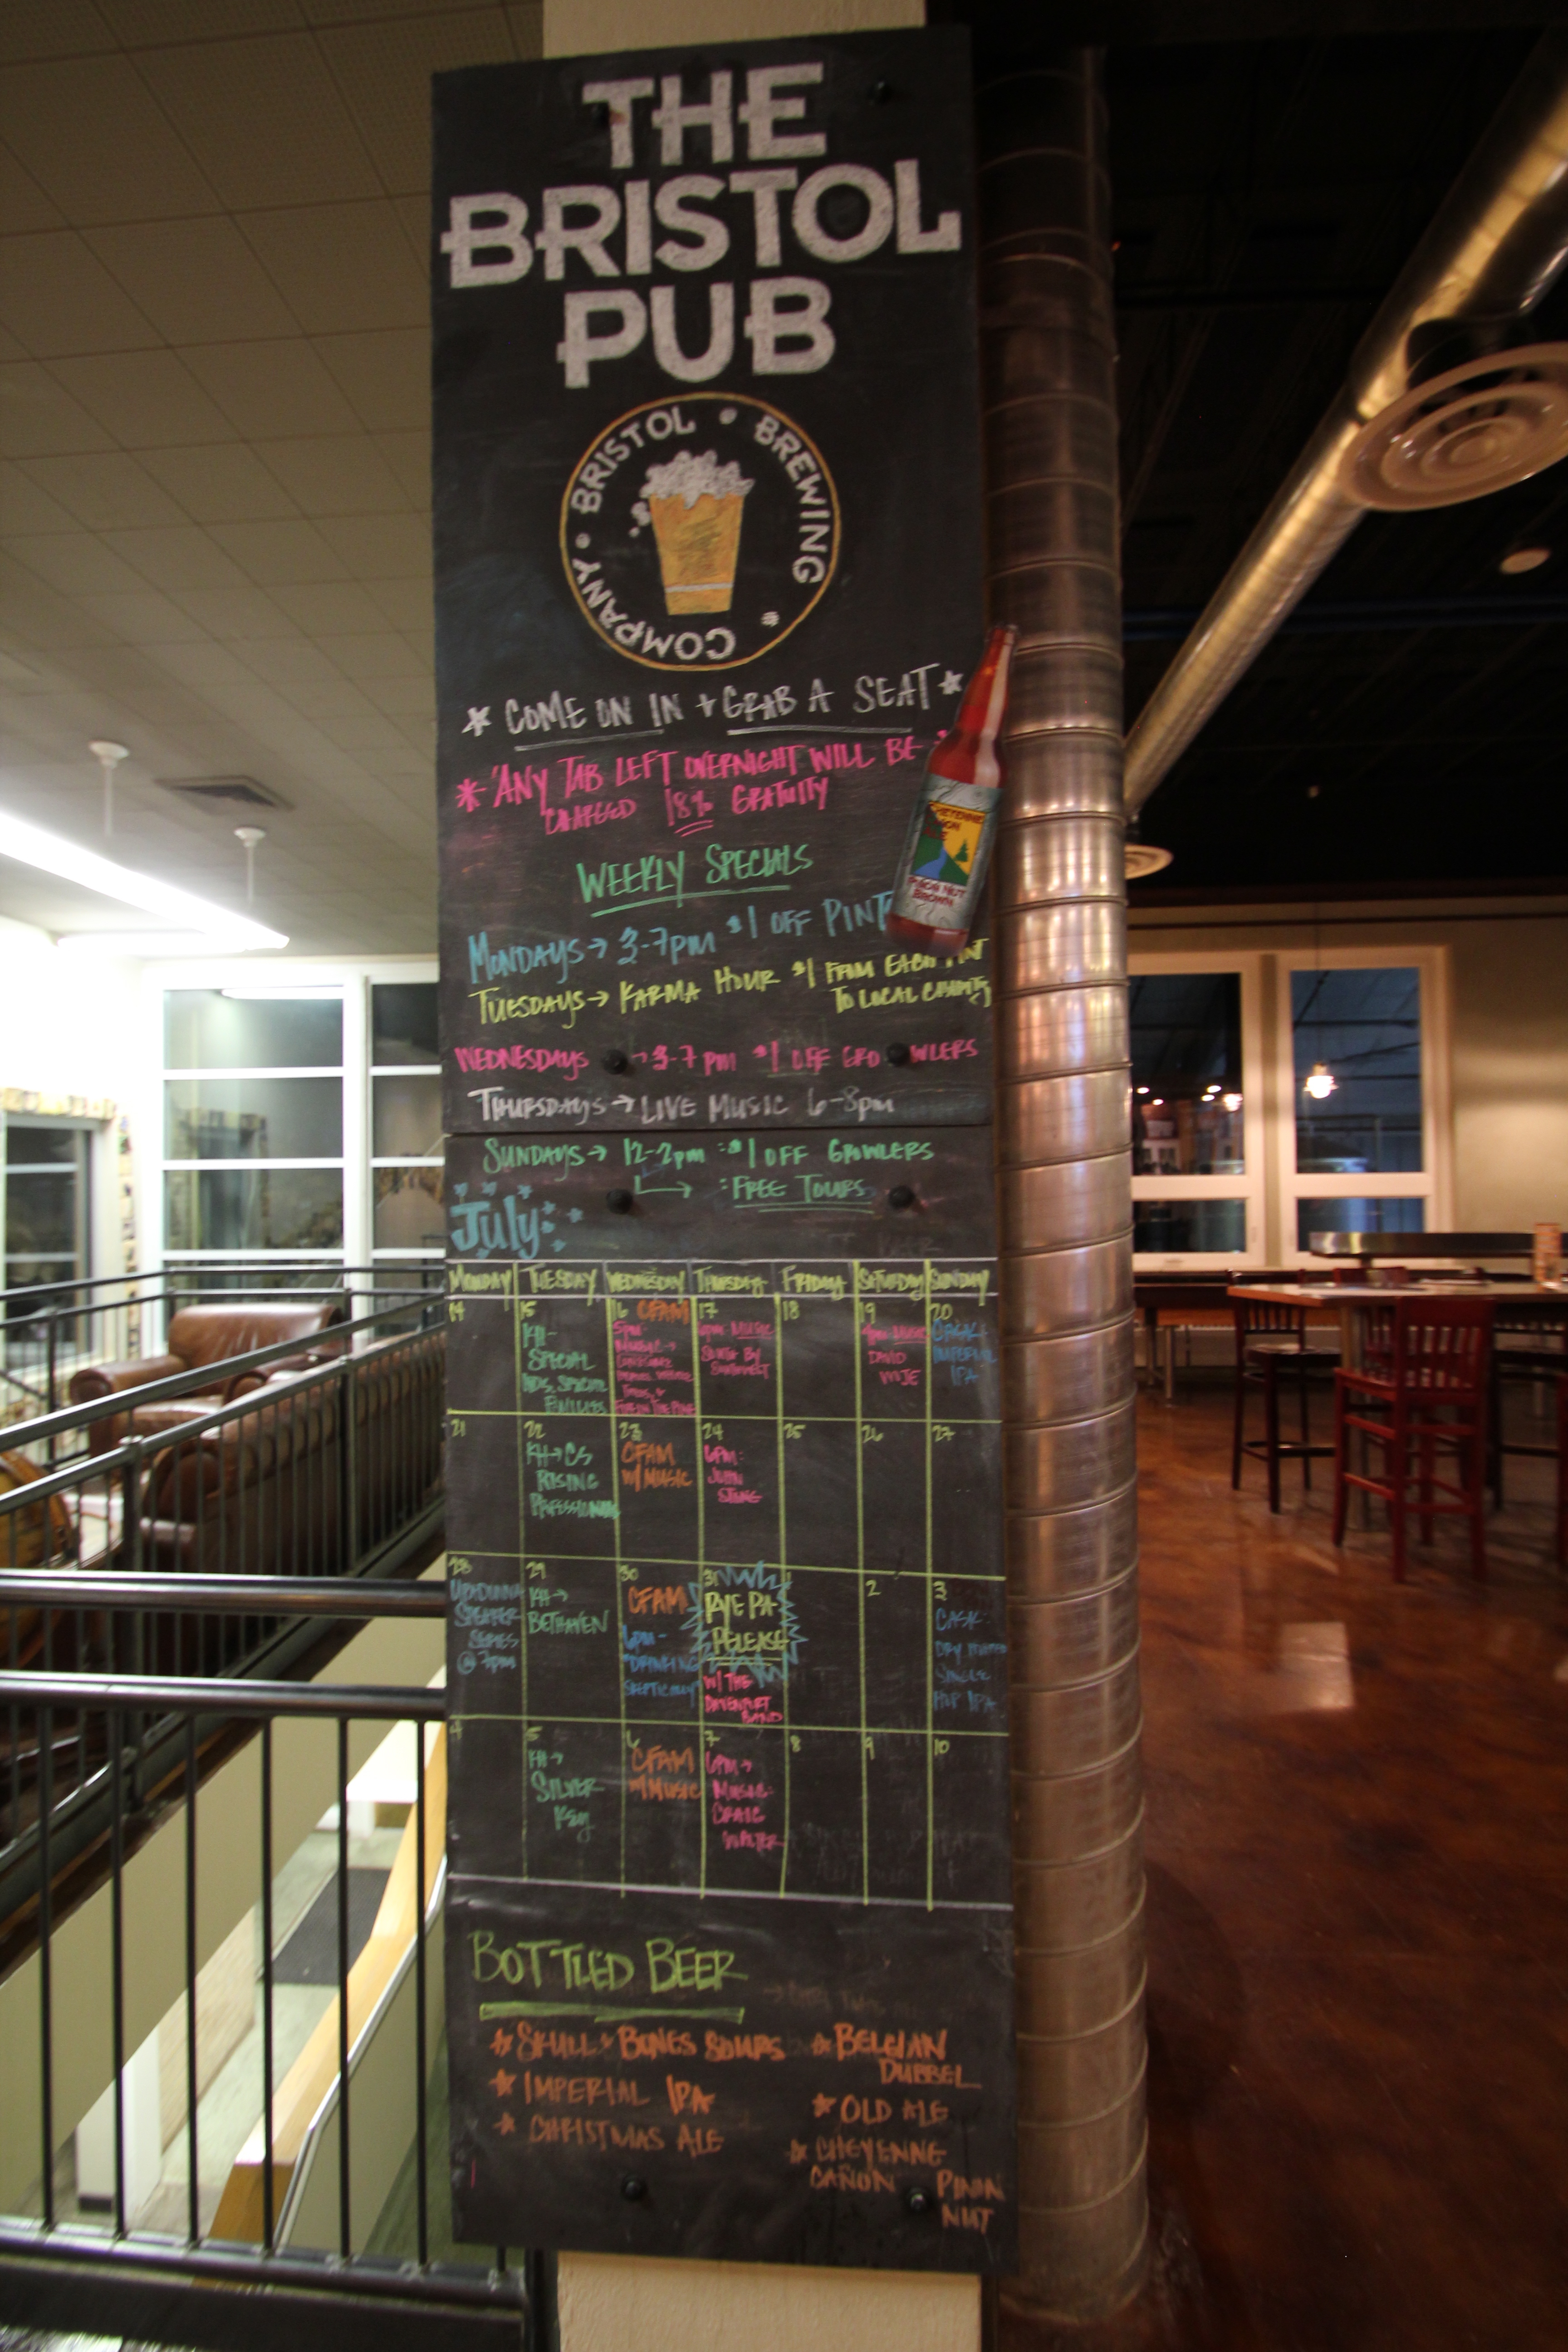 THE
BRISTOL
PUB
BRISTOL • BREWING • COMPANY •
★ COME ON IN + GRAB A SEAT ★
* ANY TAB LEFT OVERNIGHT WILL BE
CHARGED 18% GRATUITY
WEEKLY SPECIALS
MONDAYS → 3-7PM $1 OFF PINT
TUESDAYS → KARMA HOUR $1 FROM EACH PINT
TO LOCAL
WEDNESDAYS → 3-7PM $1 OFF GROWLERS
THURSDAYS → LIVE MUSIC 6-8PM
SUNDAYS → 12-2PM : $1 OFF GROWLERS
: FREE TOURS
July
MONDAY TUESDAY WEDNESDAY THURSDAY FRIDAY SATURDAY SUNDAY
14
15
KH-
SPECIAL
KIDS, SPECIAL
FAMILIES
16 CFAM
5PM
MUSIC →
FIRE IN THE PINE
17
6PM MUSIC
BY
18
19
4PM-MUSIC
DAVID
20
CASK:
IMPERIAL
IPA
21
22
KH → CS
RISING
PROFESSIONALS
23
CFAM
W/ MUSIC
24
6PM:
JOHN
25
26
27
28
SPEAKER
SERIES
@ 7PM
29
KH →
BETHAVEN
30
CFAM
6PM-
"DRINKING
SKEPTICALLY"
31
RYE PA
RELEASE
W/ THE
DAVENPORT
BAND
1
2
3
CASK:
DRY HOPPED
SINGLE
HOP IPA
4
5
KH →
SILVER
KEY
6
CFAM
W/ MUSIC
7
6PM →
MUSIC:
CRAIG
WALTER
8
9
10
BOTTLED BEER
★ SKULL & BONES SOURS
★ IMPERIAL IPA
★ CHRISTMAS ALE
★ BELGIAN
DUBBEL
★ OLD ALE
★ CHEYENNE
CAÑON PIÑON
NUT
CHEYENNE
CAÑON
PIÑON NUT
BROWN